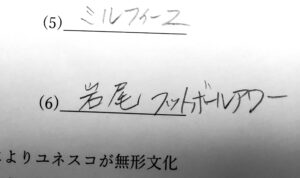 (5) ミルフィーユ
(6) 岩尾 フットボールアワー
によりユネスコが無形文化